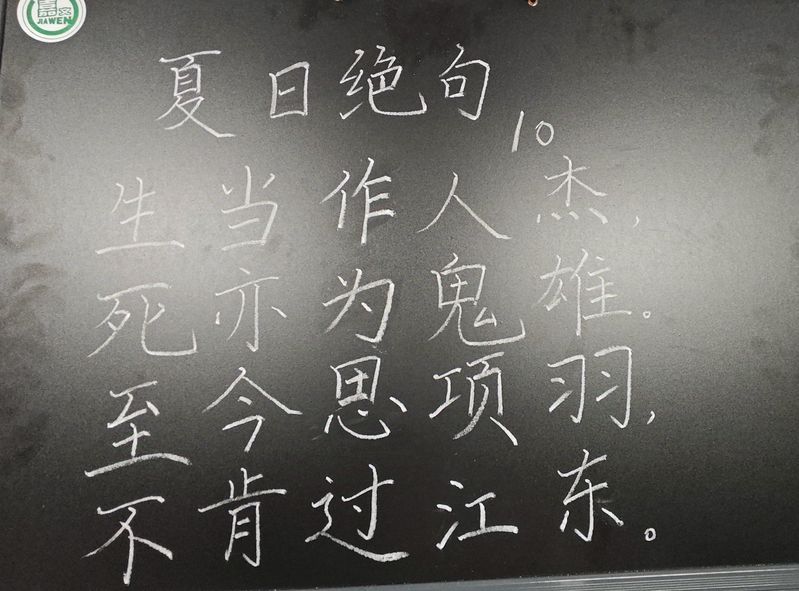 嘉文
JIAWEN
夏日绝句
10
生当作人杰，
死亦为鬼雄。
至今思项羽，
不肯过江东。